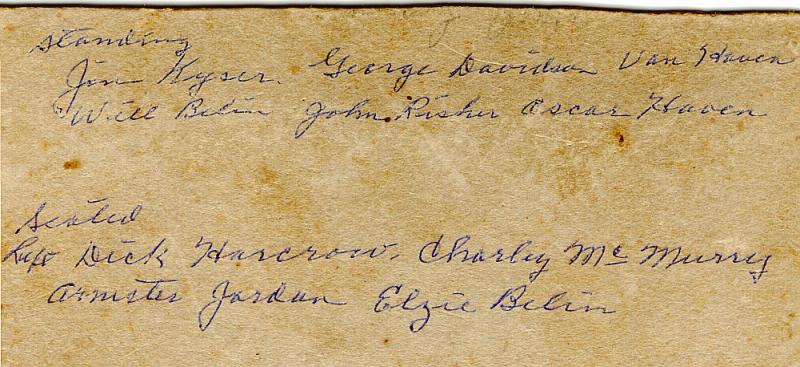 standing
Jim Kyser. George Davidson Van Haven
Will Belin John Risher Oscar Haven
Seated
Dick Harcrow. Charley Mc Murrey
Armster Jordan Elzie Belin